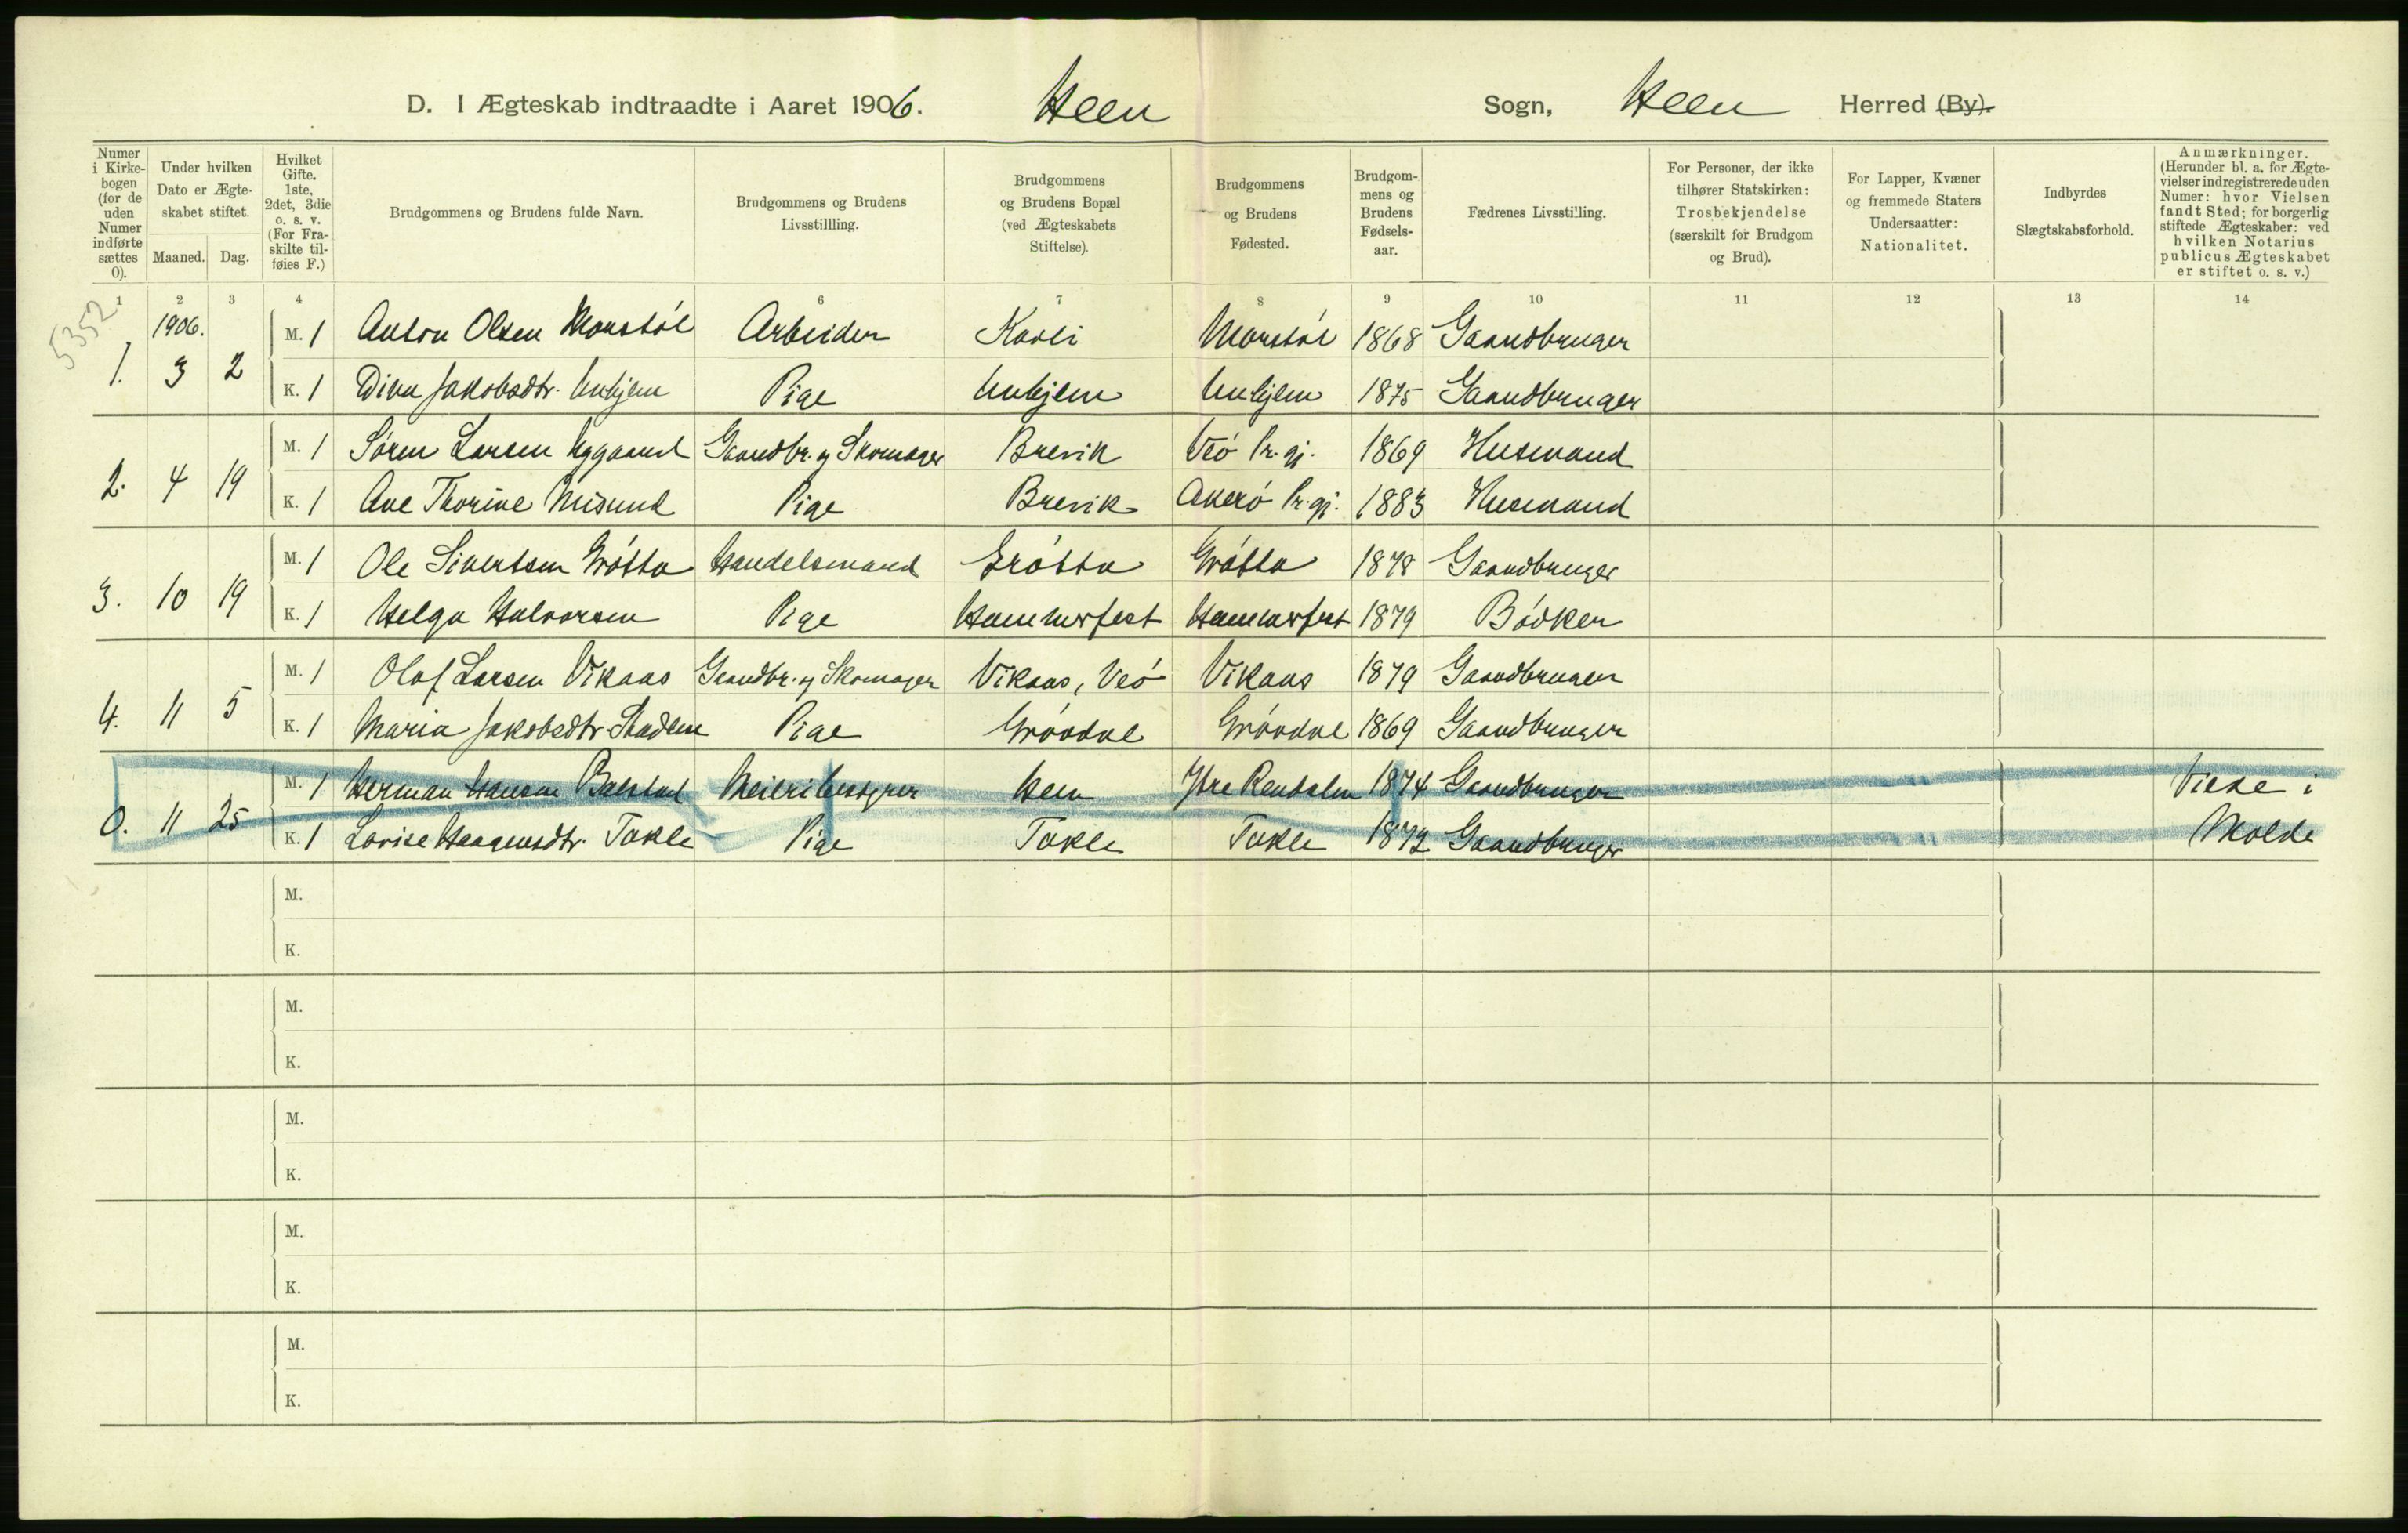 D. I Ægteskab indtraadte i Aaret 1906. Heen Sogn, Heen Herred (By).
Numer i Kirke-bogen (for de uden Numer indførte sættes 0).
Under hvilken Dato er Ægte-skabet stiftet.
Maaned. Dag.
Hvilket Gifte. 1ste, 2det, 3die o. s. v. (For Fra-skilte til-føies F.)
Brudgommens og Brudens fulde Navn.
Brudgommens og Brudens Livsstillling.
Brudgommens og Brudens Bopæl (ved Ægteskabets Stiftelse).
Brudgommens og Brudens Fødested.
Brudgom-mens og Brudens Fødsels-aar.
Fædrenes Livsstilling.
For Personer, der ikke tilhører Statskirken: Trosbekjendelse (særskilt for Brudgom og Brud).
For Lapper, Kvæner og fremmede Staters Undersaatter: Nationalitet.
Indbyrdes Slægtskabsforhold.
Anmærkninger. (Herunder bl. a. for Ægte-vielser indregistrerede uden Numer: hvor Vielsen fandt Sted; for borgerlig stiftede Ægteskaber: ved hvilken Notarius publicus Ægteskabet er stiftet o. s. v.)
1 2 3 4 6 7 8 9 10 11 12 13 14
5352
1906.
M. 1 Anton Olsen Monstøl Arbeider Kavli Monstøl 1868 Gaardbruger
1. 3 2
K. 1 Dina Jakobsdtr. Unhjem Pige Unhjem Unhjem 1875 Gaardbruger
M. 1 Søren Larsen Nygaard Gaardbr. og Skomager Brevik Veø Pr.gj. 1869 Husmand
2. 4 19
K. 1 Ane Thorine Misund Pige Brevik Akerø Pr.gj. 1883 Husmand
M. 1 Ole Sivertsen Grøtta Handelsmand Grøtta Grøtta 1878 Gaardbruger
3. 10 19
K. 1 Helga Halvorsen Pige Hammerfest Hammerfest 1879 Bødker
M. 1 Olaf Larsen Vikaas Gaardbr. og Skomager Vikaas, Veø Vikaas 1879 Gaardbruger
4. 11 5
K. 1 Maria Jakobsdtr. Stadem Pige Grøvdal Grøvdal 1869 Gaardbruger
M. 1 Herman Hansen Meieribestyrer Heen Ytre Rendalen 1874 Gaardbruger Viede i
0. 11 25
K. 1 Lovise Haagensdtr. Tokle Pige Tokle Tokle 1872 Gaardbruger Molde
M.
K.
M.
K.
M.
K.
M.
K.
M.
K.